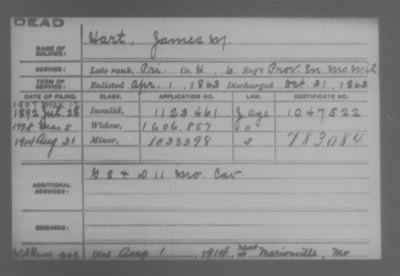 DEAD
NAME OF SOLDIER: Hart, James M.
SERVICE: Late rank, Pri. Co. H, 6 Reg't Prov. En. Mo Mil
TERM OF SERVICE: Enlisted Apr. 1, 1863 Discharged Oct 31, 1863
DATE OF FILING. CLASS. APPLICATION NO. LAW. CERTIFICATE NO.
1892 Jul 28 Invalid, 1123461 1047522
Mar 5 Widow, 1606857
1914 Aug 31 Minor, 1033398 783084
ADDITIONAL SERVICES: G & D 11 Mo. Cav
REMARKS:
Died Aug 1, 1914, Marionville, Mo